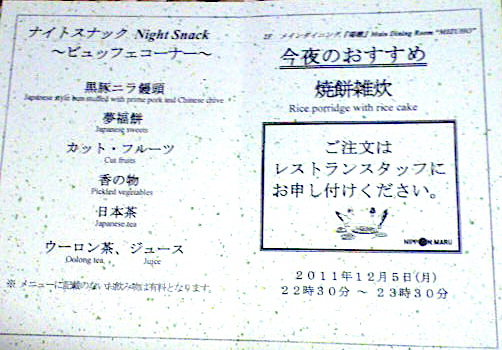 ナイトスナック Night Snack
～ビュッフェコーナー～
黒豚ニラ饅頭
Japanese style bun stuffed with prime pork and Chinese chive
夢福餅
Japanese sweets
カット・フルーツ
Cut fruits
香の物
Pickled vegetables
日本茶
Japanese tea
ウーロン茶、ジュース
Oolong tea Juice
※ メニューに記載のないお飲み物は有料となります。
2F メインダイニング『瑞穂』Main Dining Room "MIZUHO"
今夜のおすすめ
焼餅雑炊
Rice porridge with rice cake
ご注文は
レストランスタッフに
お申し付けください。
NIPPON MARU
2011年12月5日(月)
22時30分 ～ 23時30分